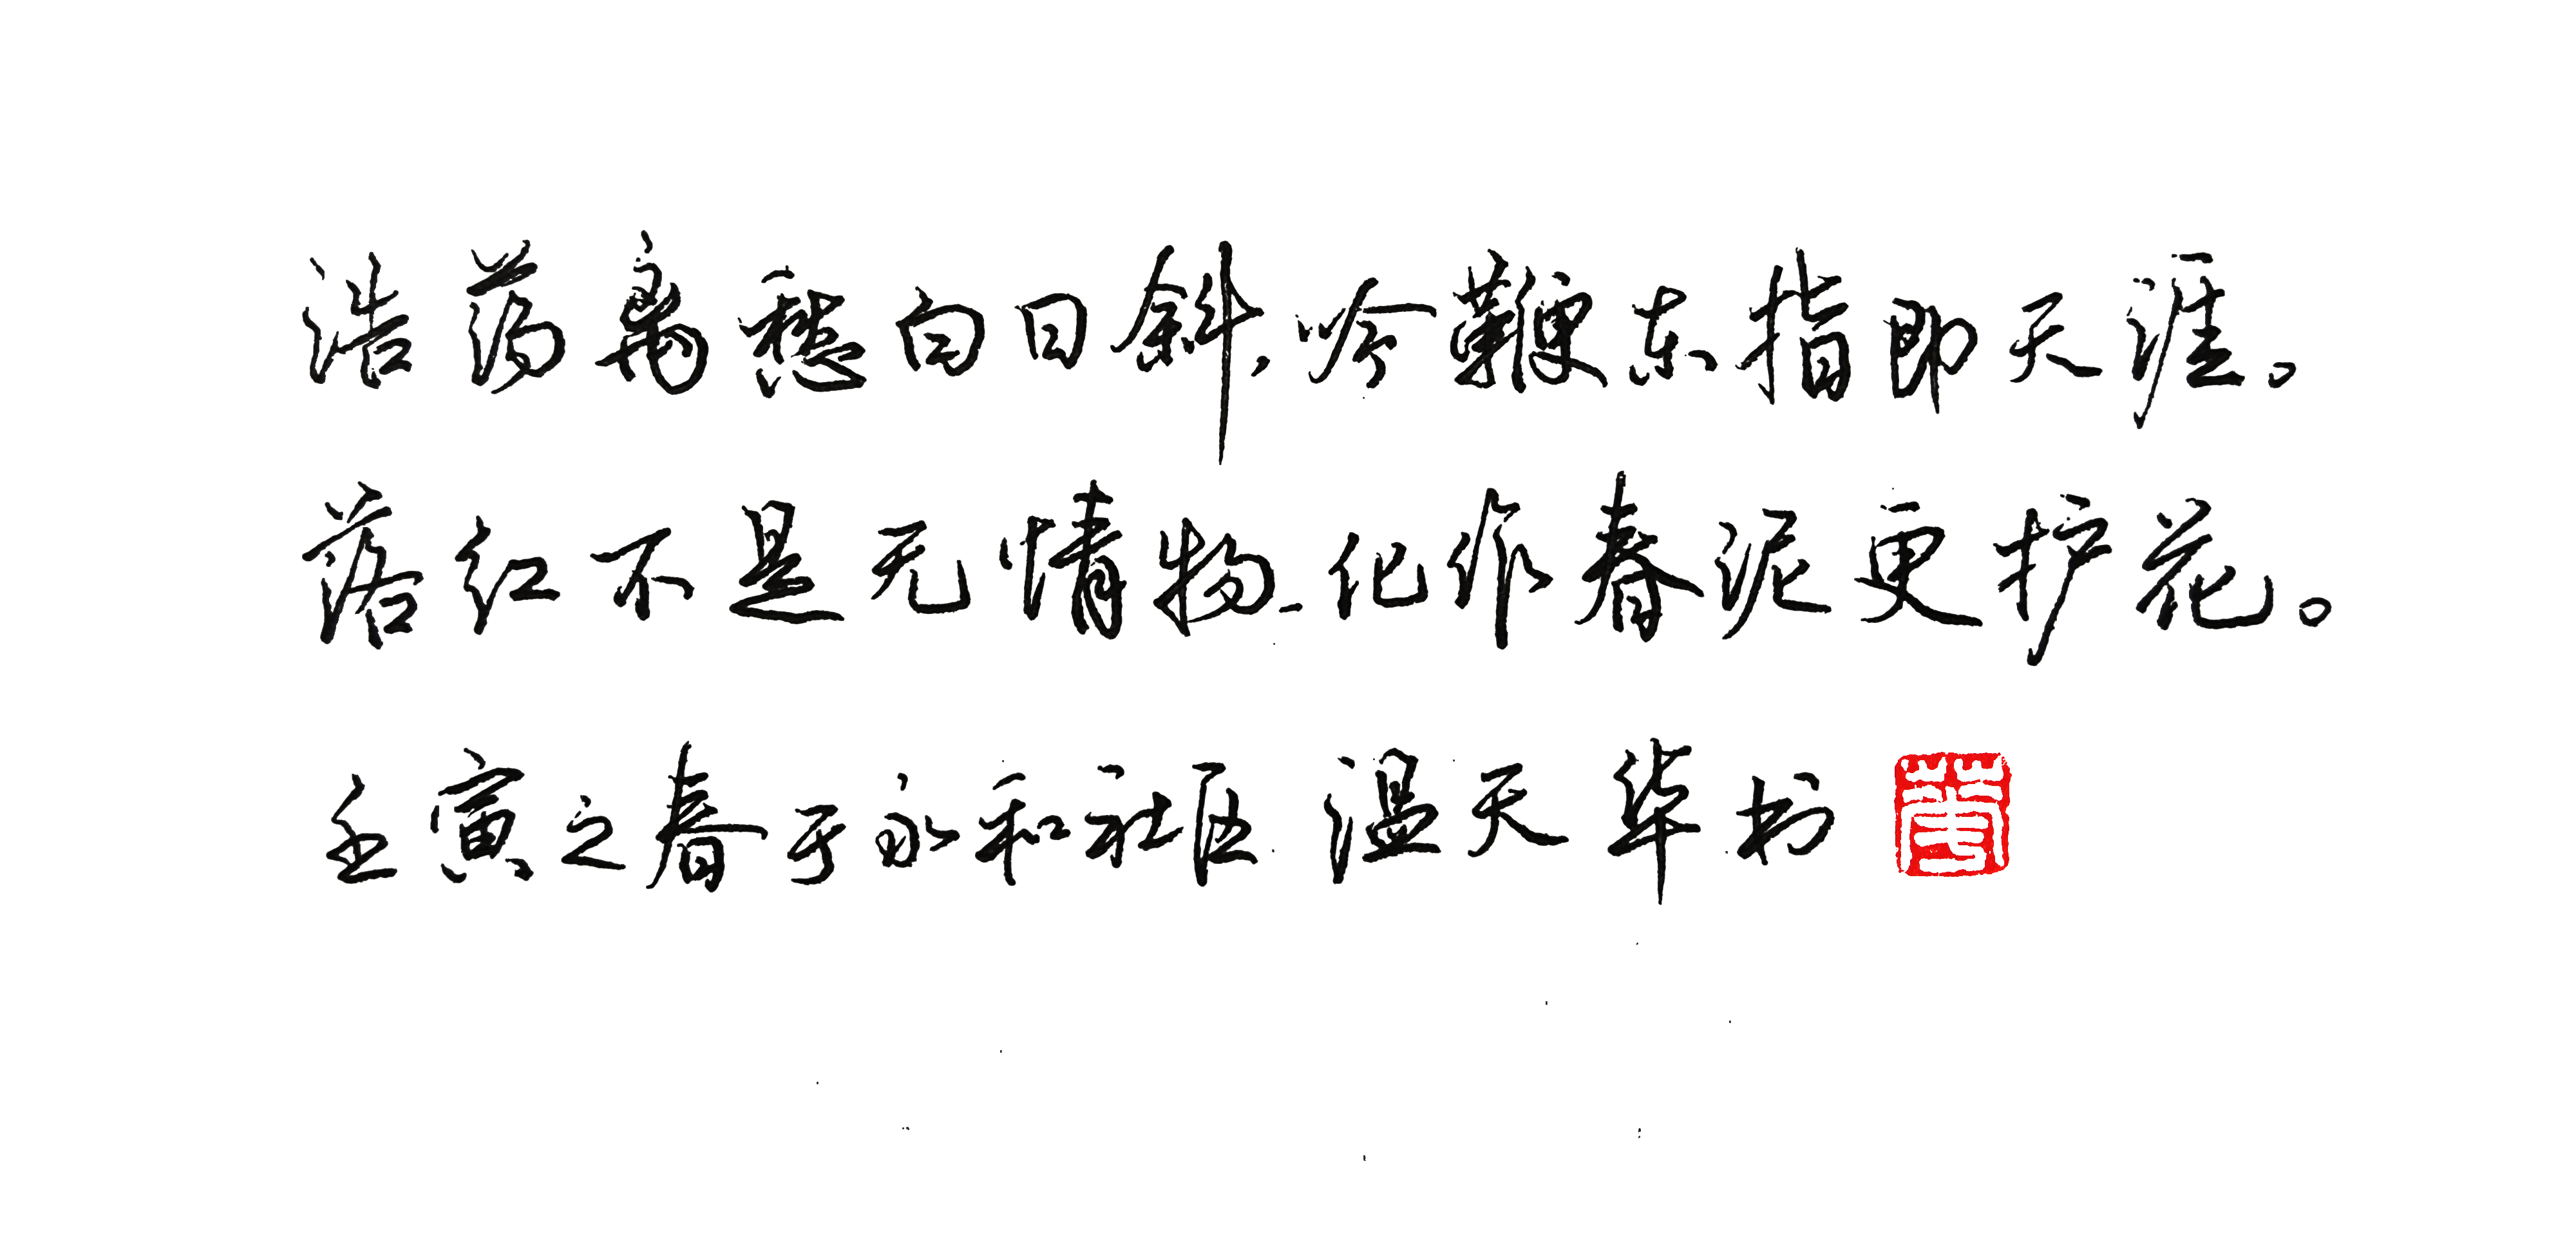 浩荡离愁白日斜，吟鞭东指即天涯。
落红不是无情物、化作春泥更护花。
壬寅之春于永和社区 温天华书